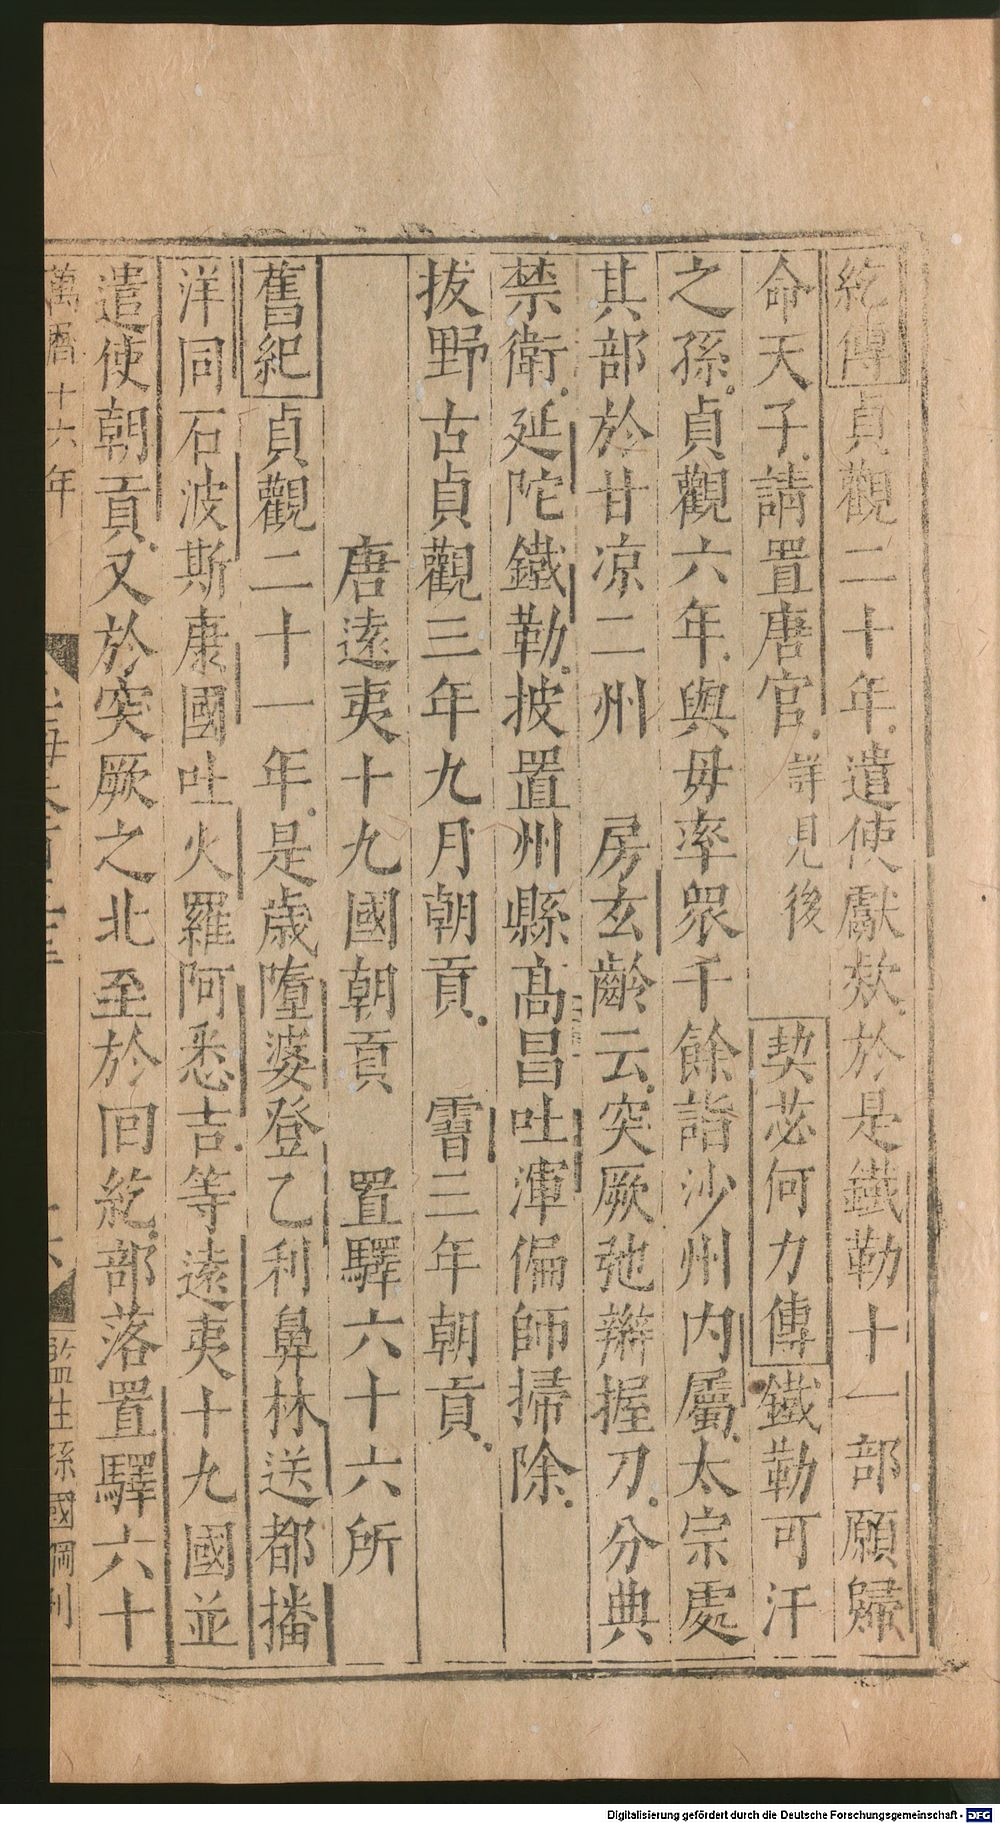 紇傳貞觀二十年遣使獻欸於是鐵勒十一部願歸
命天子請置唐官詳見後 契苾何力傳鐵勒可汗
之孫貞觀六年與毋率衆千餘詣沙州内屬太宗處
其部於甘凉二州 房玄齡云突厥弛辮握刀分典
禁衛延陀鐵勒披置州縣高昌吐渾偏師掃除
拔野古貞觀三年九月朝貢 霫三年朝貢
唐逺夷十九國朝貢 置驛六十六所
舊紀貞觀二十一年是歳墮婆登乙利鼻林送都播
洋同石波斯康國吐火羅阿悉吉等逺夷十九國並
遣使朝貢又於突厥之北至於回紇部落置驛六十
萬曆十六年
監生孫國綱刊
Digitalisierung gefördert durch die Deutsche Forschungsgemeinschaft - DFG